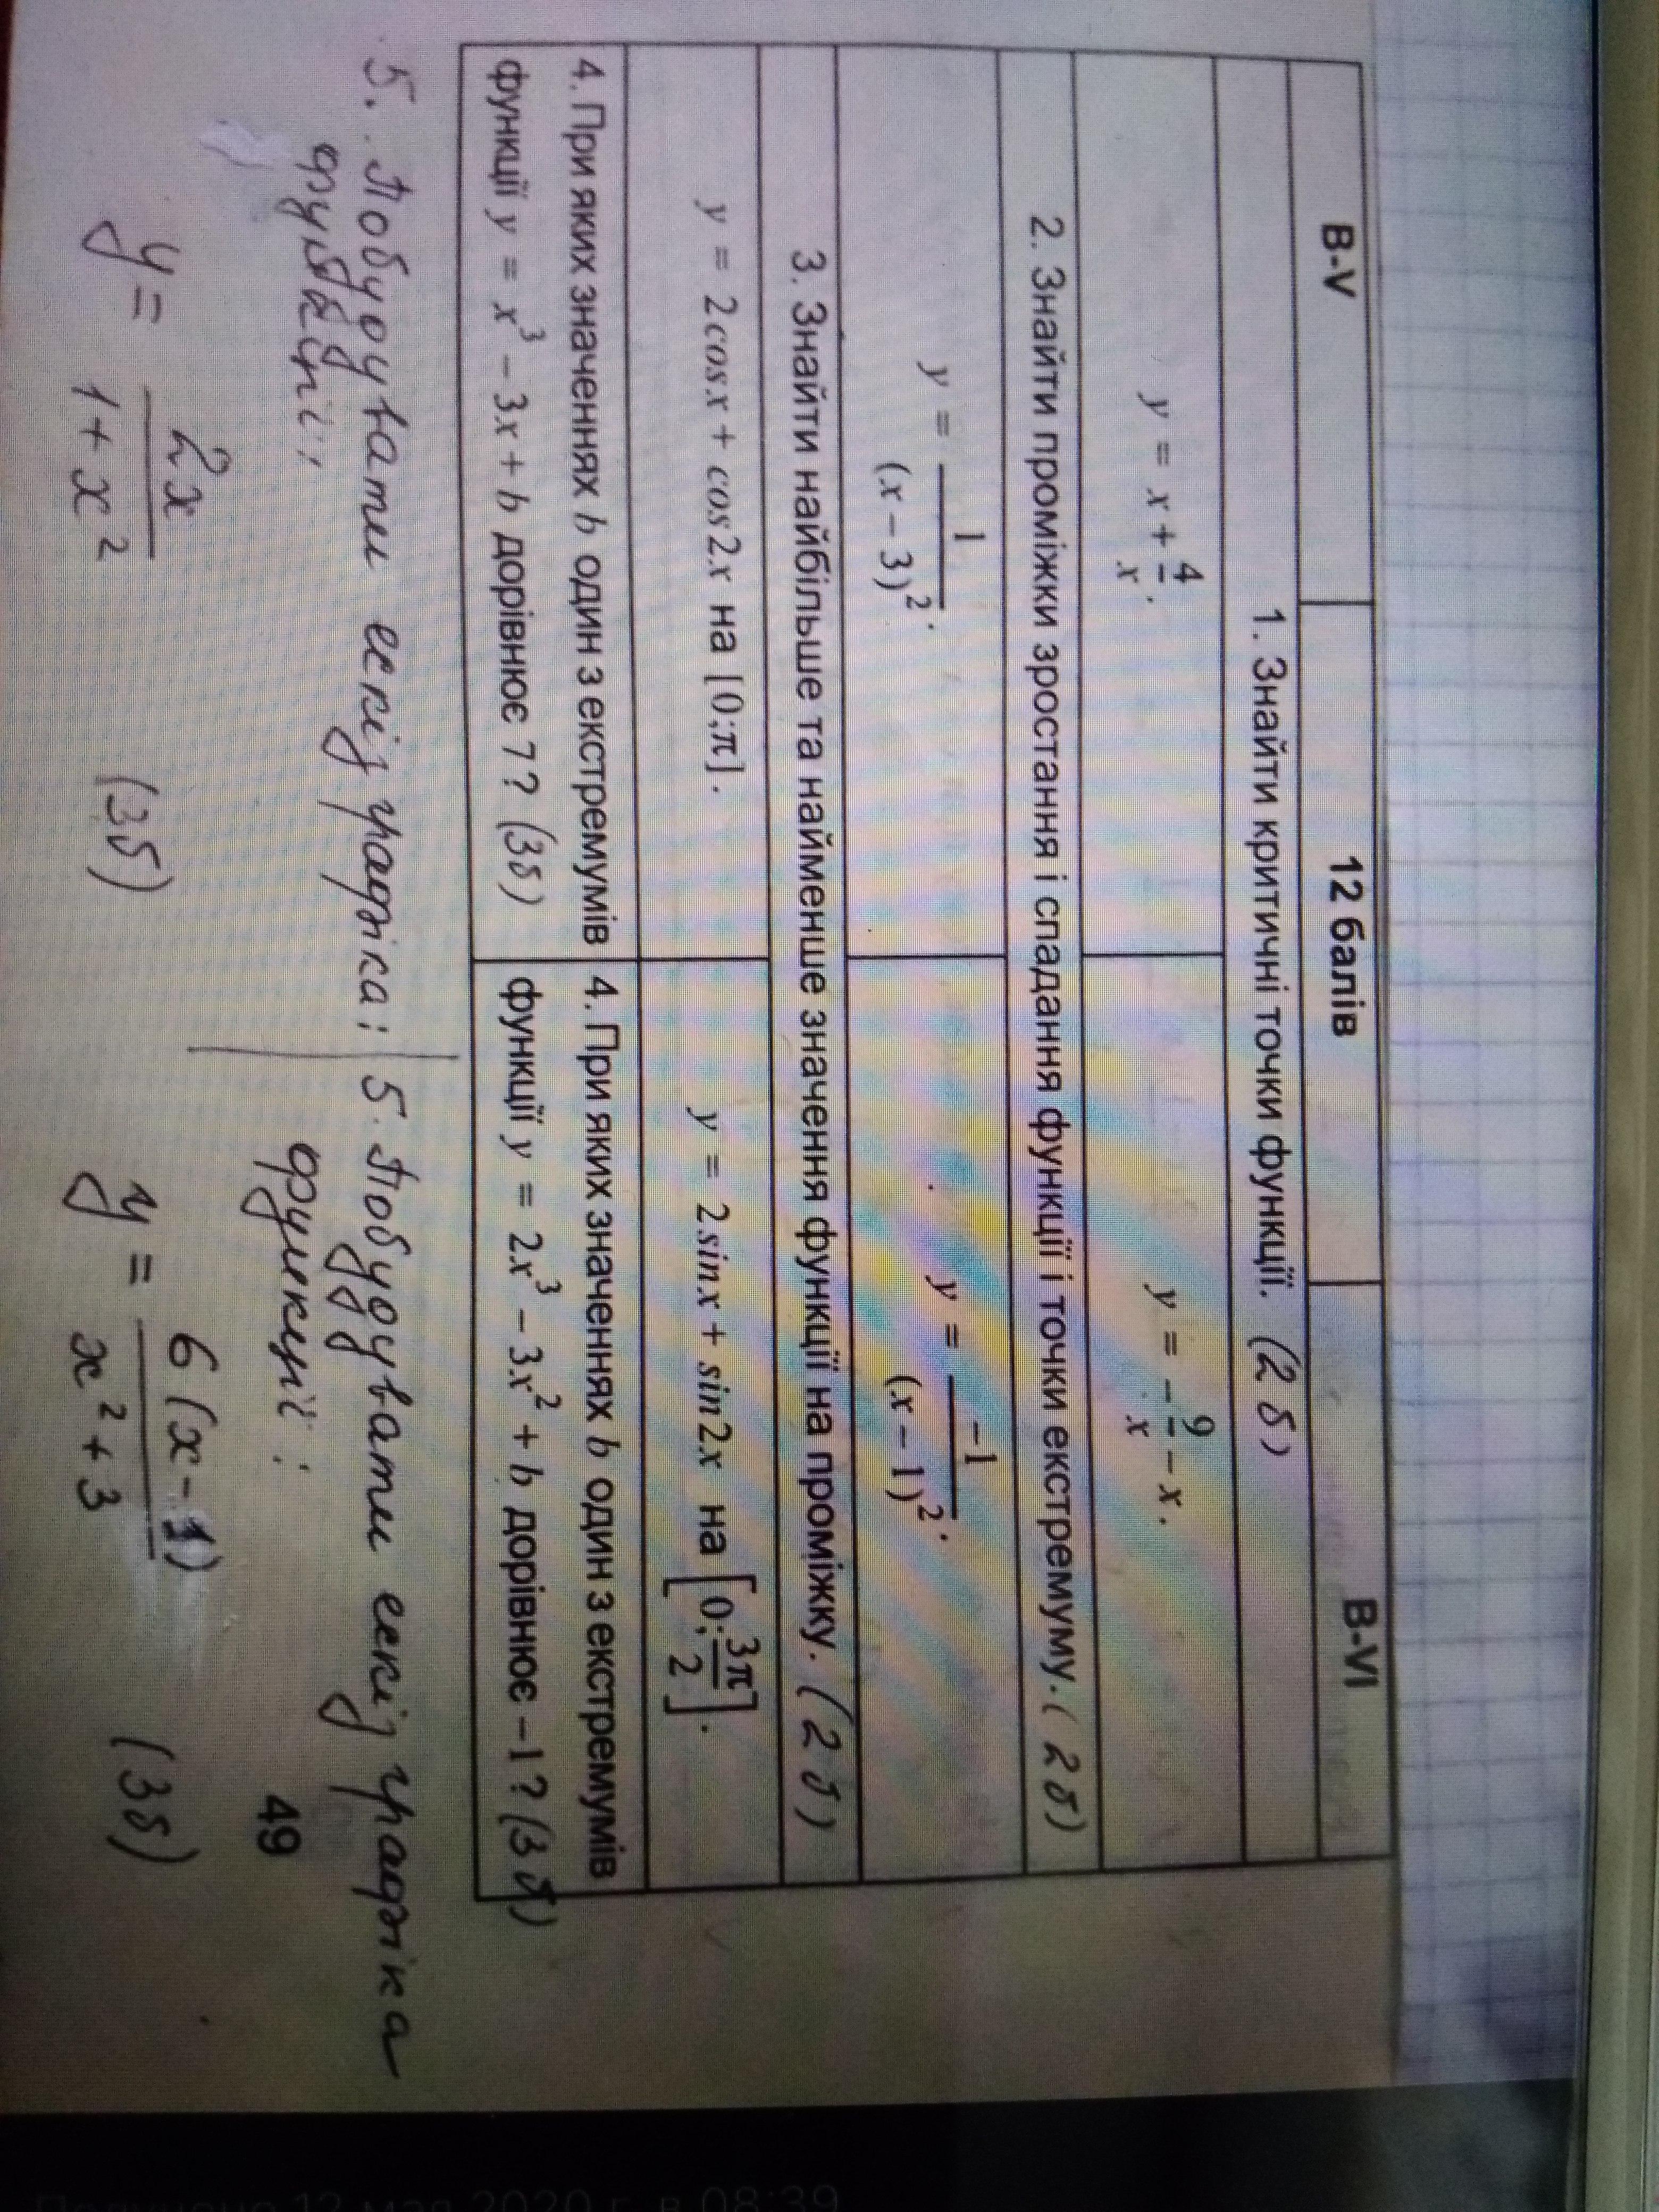 В-V 12 балів В-VI
1. Знайти критичні точки функції. (2 б)
y = x + 4/x. y = -9/x - x.
2. Знайти проміжки зростання і спадання функції і точки екстремуму. (2 б)
y = 1/(x - 3)². y = -1/(x - 1)².
3. Знайти найбільше та найменше значення функції на проміжку. (2 б)
y = 2cosx + cos2x на [0;π]. y = 2sinx + sin2x на [0; 3π/2].
4. При яких значеннях b один з екстремумів
функції y = x³ - 3x + b дорівнює 7? (3б)
4. При яких значеннях b один з екстремумів
функції y = 2x³ - 3x² + b дорівнює -1? (3 б)
5. Побудувати ескіз графіка
функції:
y = 2x/(1 + x²) (3б)
5. Побудувати ескіз графіка
функції:
y = 6(x - 1)/(x² + 3) (3б)
49
Получено 12 мая 2020 г. в 08:39